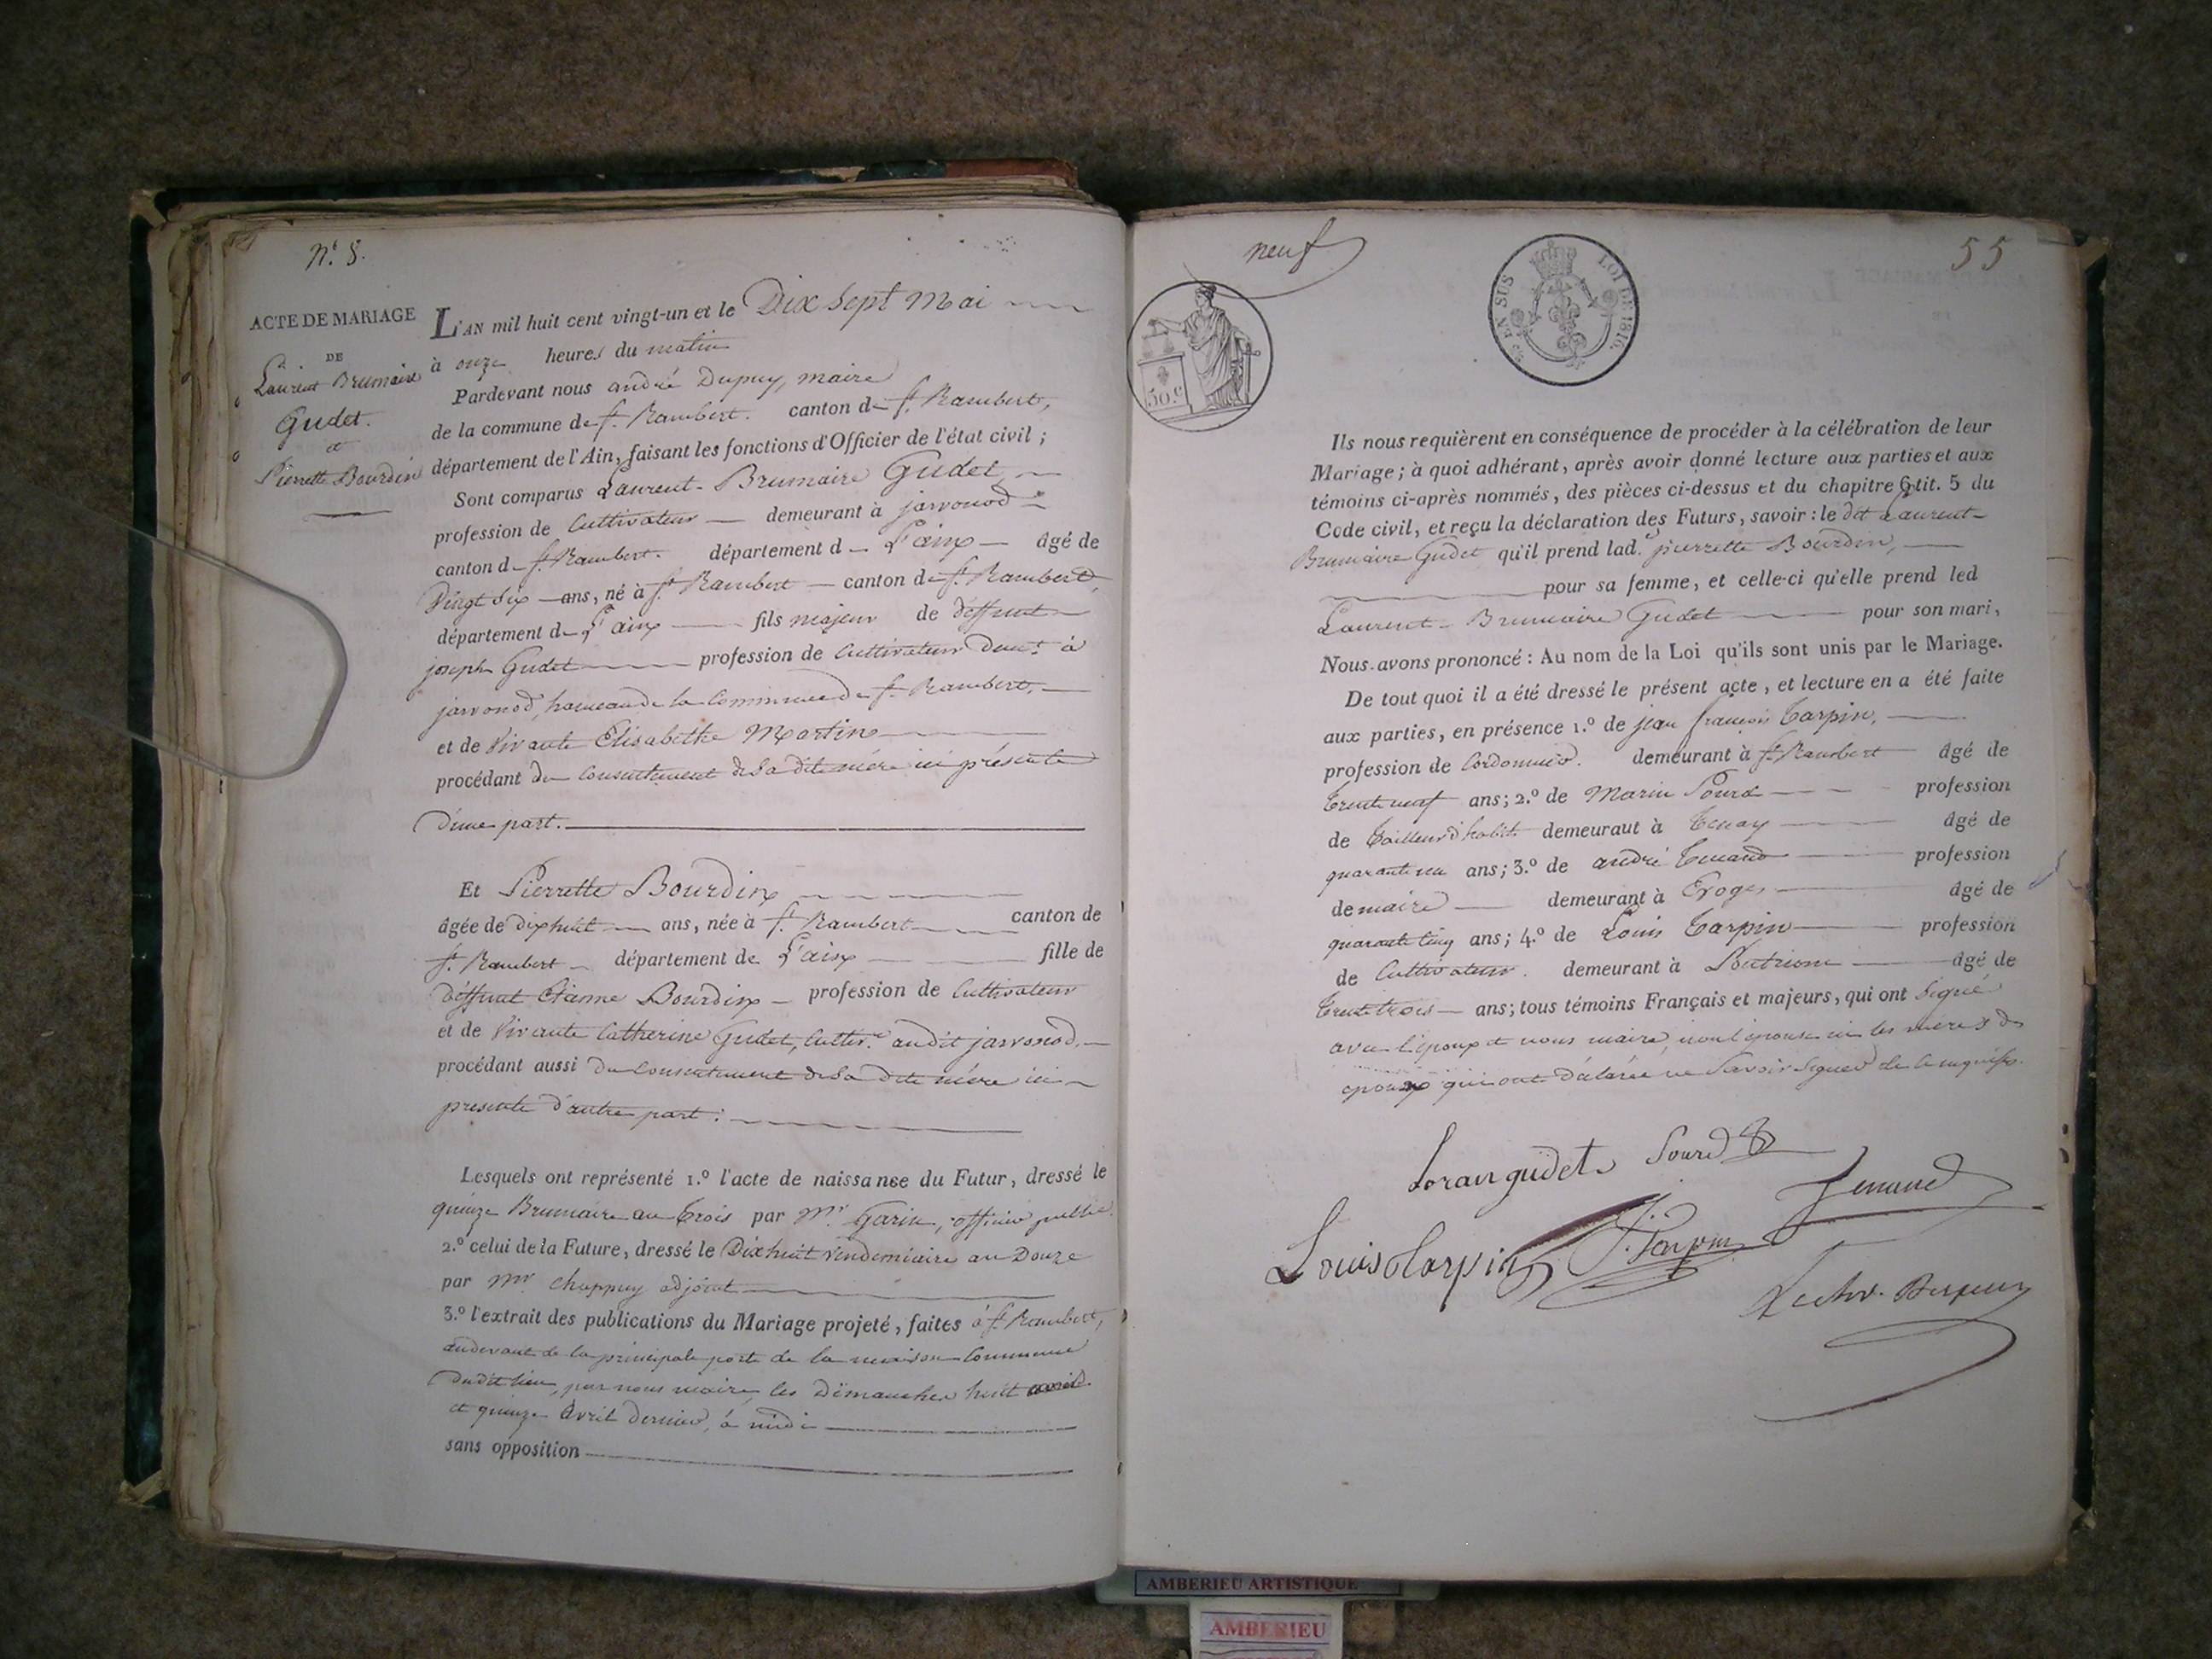 N.º 8.
ACTE DE MARIAGE
DE
Laurent Brumaire
Gudet.
et
Pierrette Bourdin
L'AN mil huit cent vingt-un et le Dix Sept Mai
à onze heures du matin
Pardevant nous andré Dupuy, maire
de la commune de St. Rambert. canton de St. Rambert,
département de l'Ain, faisant les fonctions d'Officier de l'état civil ;
Sont comparus Laurent-Brumaire Gudet,
profession de Cultivateur demeurant à jarvonod
canton de St. Rambert. département d L'ain agé de
Vingt Six ans, né à St. Rambert canton de St. Rambert,
département d L'ain fils majeur de deffunt
joseph Gudet profession de Cultivateur demt. à
jarvonod, hameau de la Commune de St. Rambert,
et de Vivante Elisabethe Martin
procédant du Consentement de Sa dite mère ici présente
d'une part.
Et Pierrette Bourdin
âgée de dixhuit ans, née à St. Rambert canton de
St. Rambert département de L'ain fille de
deffunt Etienne Bourdin profession de Cultivateur
et de Vivante Catherine Gudet, Cultiv.ce audit jarvonod,
procédant aussi du Consentement de Sa dite mère ici
presente d'autre part :
Lesquels ont représenté 1.º l'acte de naissance du Futur, dressé le
quinze Brumaire an trois par Mr. Garin, officier public
2.º celui de la Future, dressé le Dixhuit Vendemiaire an Douze
par Mr. Chappuy adjoint
3.º l'extrait des publications du Mariage projeté, faites à St. Rambert,
audevant de la principale porte de la maison Commune
dudit lieu, par nous maire, les Dimanches huit avril
et quinze Avril dernier, à midi
sans opposition
neuf
55
30.c
EN SUS
LOI DE 1816.
Ils nous requièrent en conséquence de procéder à la célébration de leur
Mariage ; à quoi adhérant, après avoir donné lecture aux parties et aux
témoins ci-après nommés, des pièces ci-dessus et du chapitre 6 tit. 5 du
Code civil, et reçu la déclaration des Futurs, savoir : le dit Laurent-
Brumaire Gudet qu'il prend lad. pierrette Bourdin,
pour sa femme, et celle-ci qu'elle prend led
Laurent-Brumaire Gudet pour son mari,
Nous avons prononcé : Au nom de la Loi qu'ils sont unis par le Mariage.
De tout quoi il a été dressé le présent acte, et lecture en a été faite
aux parties, en présence 1.º de jean françois Tarpin,
profession de Cordonnier. demeurant à St. Rambert âgé de
trente neuf ans ; 2.º de Marin Sourd profession
de tailleur d'habits demeurant à Tenay âgé de
quarante un ans ; 3.º de andré Tenand profession
de maire demeurant à Evoges âgé de
quarante cinq ans ; 4.º de Louis Tarpin profession
de Cultivateur. demeurant à âgé de
trente trois ans ; tous témoins Français et majeurs, qui ont Signé
avec l'epoux et nous maire, non l'epouse ni les mères des
epoux qui ont déclarée ne Savoir Signer de ce requises.
Loran gudet Sourd
Louis tarpin J. f. Tarpin Tenand
Dupuy
AMBERIEU ARTISTIQUE
AMBERIEU